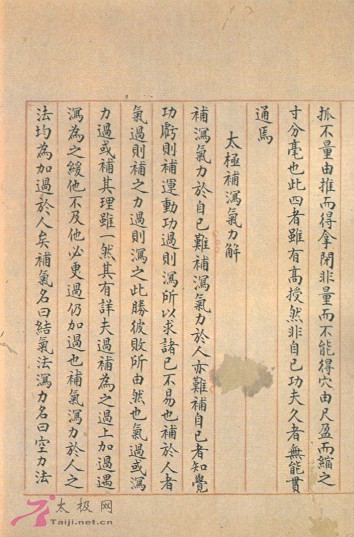 抓不量由推而得拿閉非量而不能得穴由尺盈而縮之
寸分毫也此四者雖有高授然非自己功夫久者無能貫
通焉
太極補瀉氣力解
補瀉氣力於自己難補瀉氣力於人亦難補自己者知覺
功虧則補運動功過則瀉所以求諸己不易也補於人者
氣過則補之力過則瀉之此勝彼敗所由然也氣過或瀉
力過或補其理雖一然其有詳夫過補為之過上加過遇
瀉為之緩他不及他必更過仍加過也補氣瀉力於人之
法均為加過於人矣補氣名曰結氣法瀉力名曰空力法
太极网
Taiji.net.cn